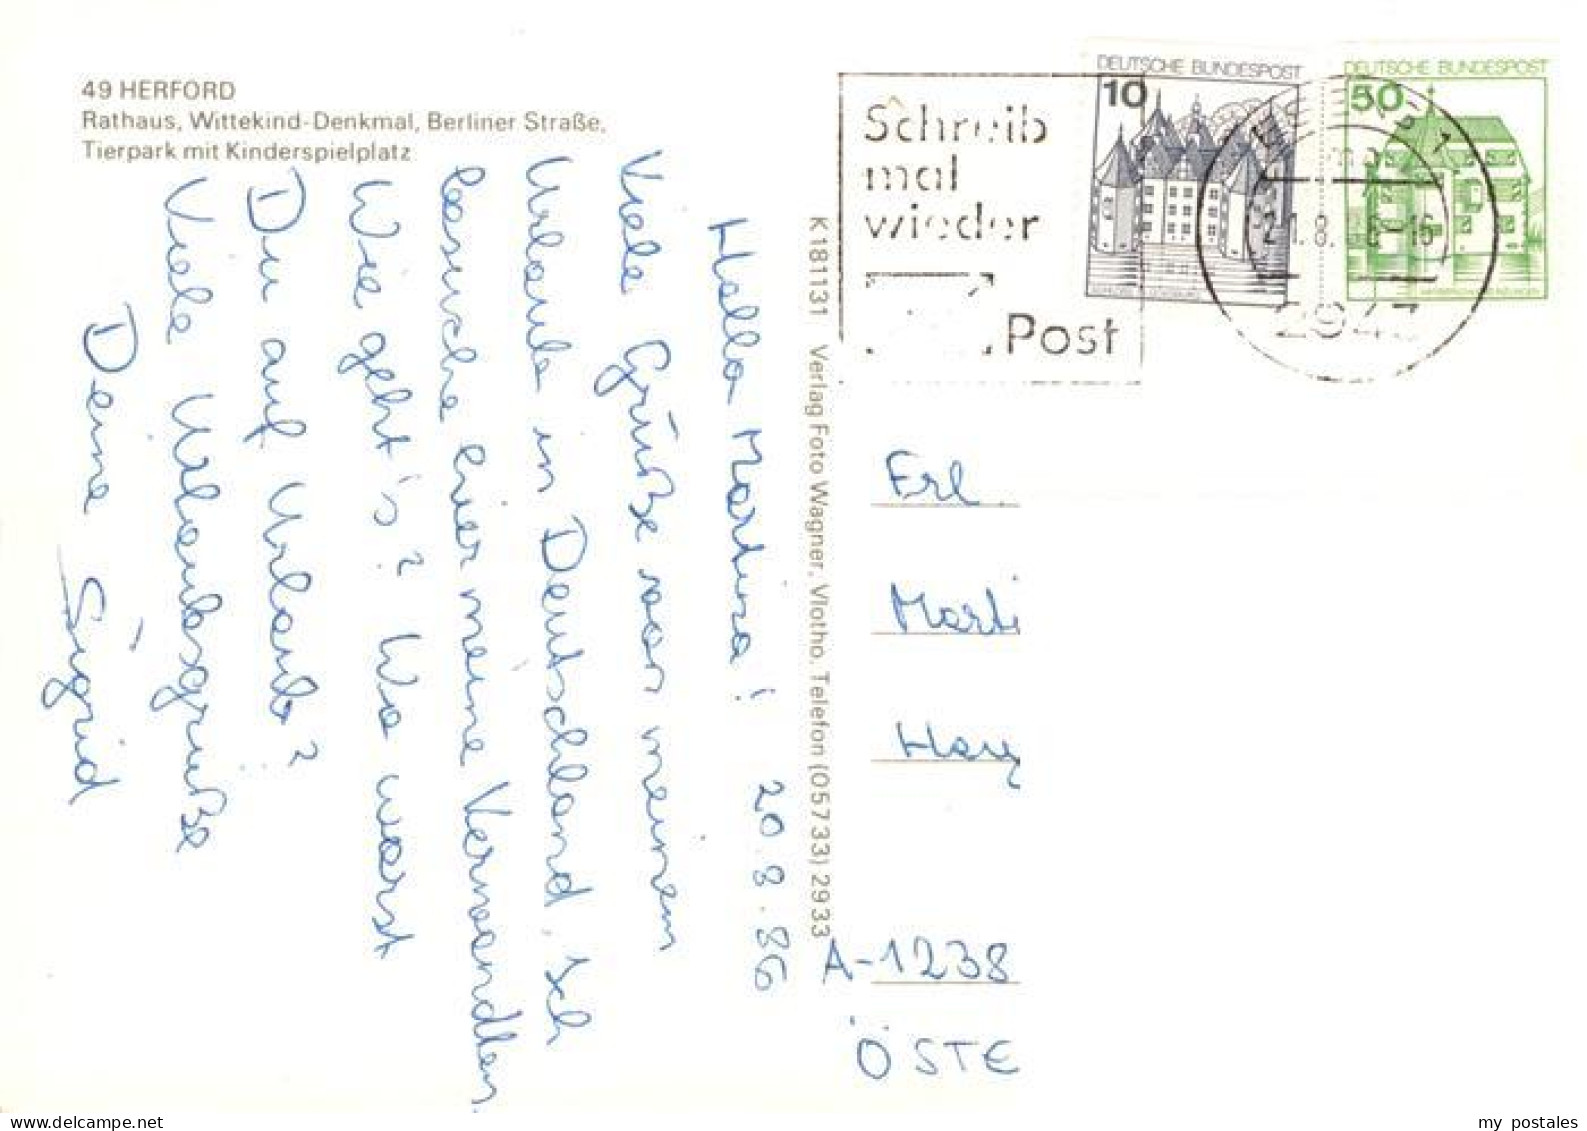 49 HERFORD
Rathaus, Wittekind-Denkmal, Berliner Straße,
Tierpark mit Kinderspielplatz
Hallo Martina! 20.8.86
Viele Grüße von meinem
Urlaub in Deutschland. Ich
besuche hier meine Verwandten.
Wie geht's? Wo warst
Du auf Urlaub?
Viele Urlaubsgrüße
Deine Sigrid
K 181131 Verlag Foto Wagner, Vlotho, Telefon (05733) 2933
Schreib
mal
wieder
Post
DEUTSCHE BUNDESPOST
10
DEUTSCHE BUNDESPOST
50
Frl.
Marti
A-1238
ÖSTE
my postales